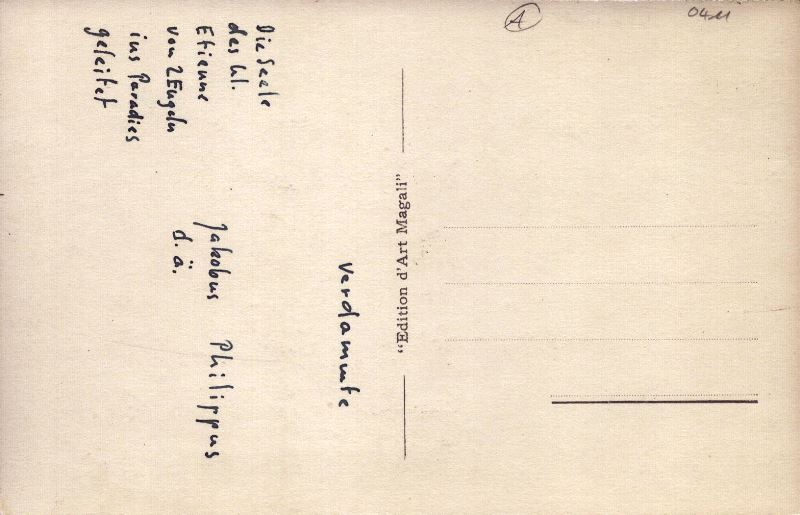 A
0411
Die Seele
des hl.
Etienne
von 2 Engeln
ins Paradies
geleitet
Jakobus
d. ä.
Philippus
Verdammte
“Edition d'Art Magali”